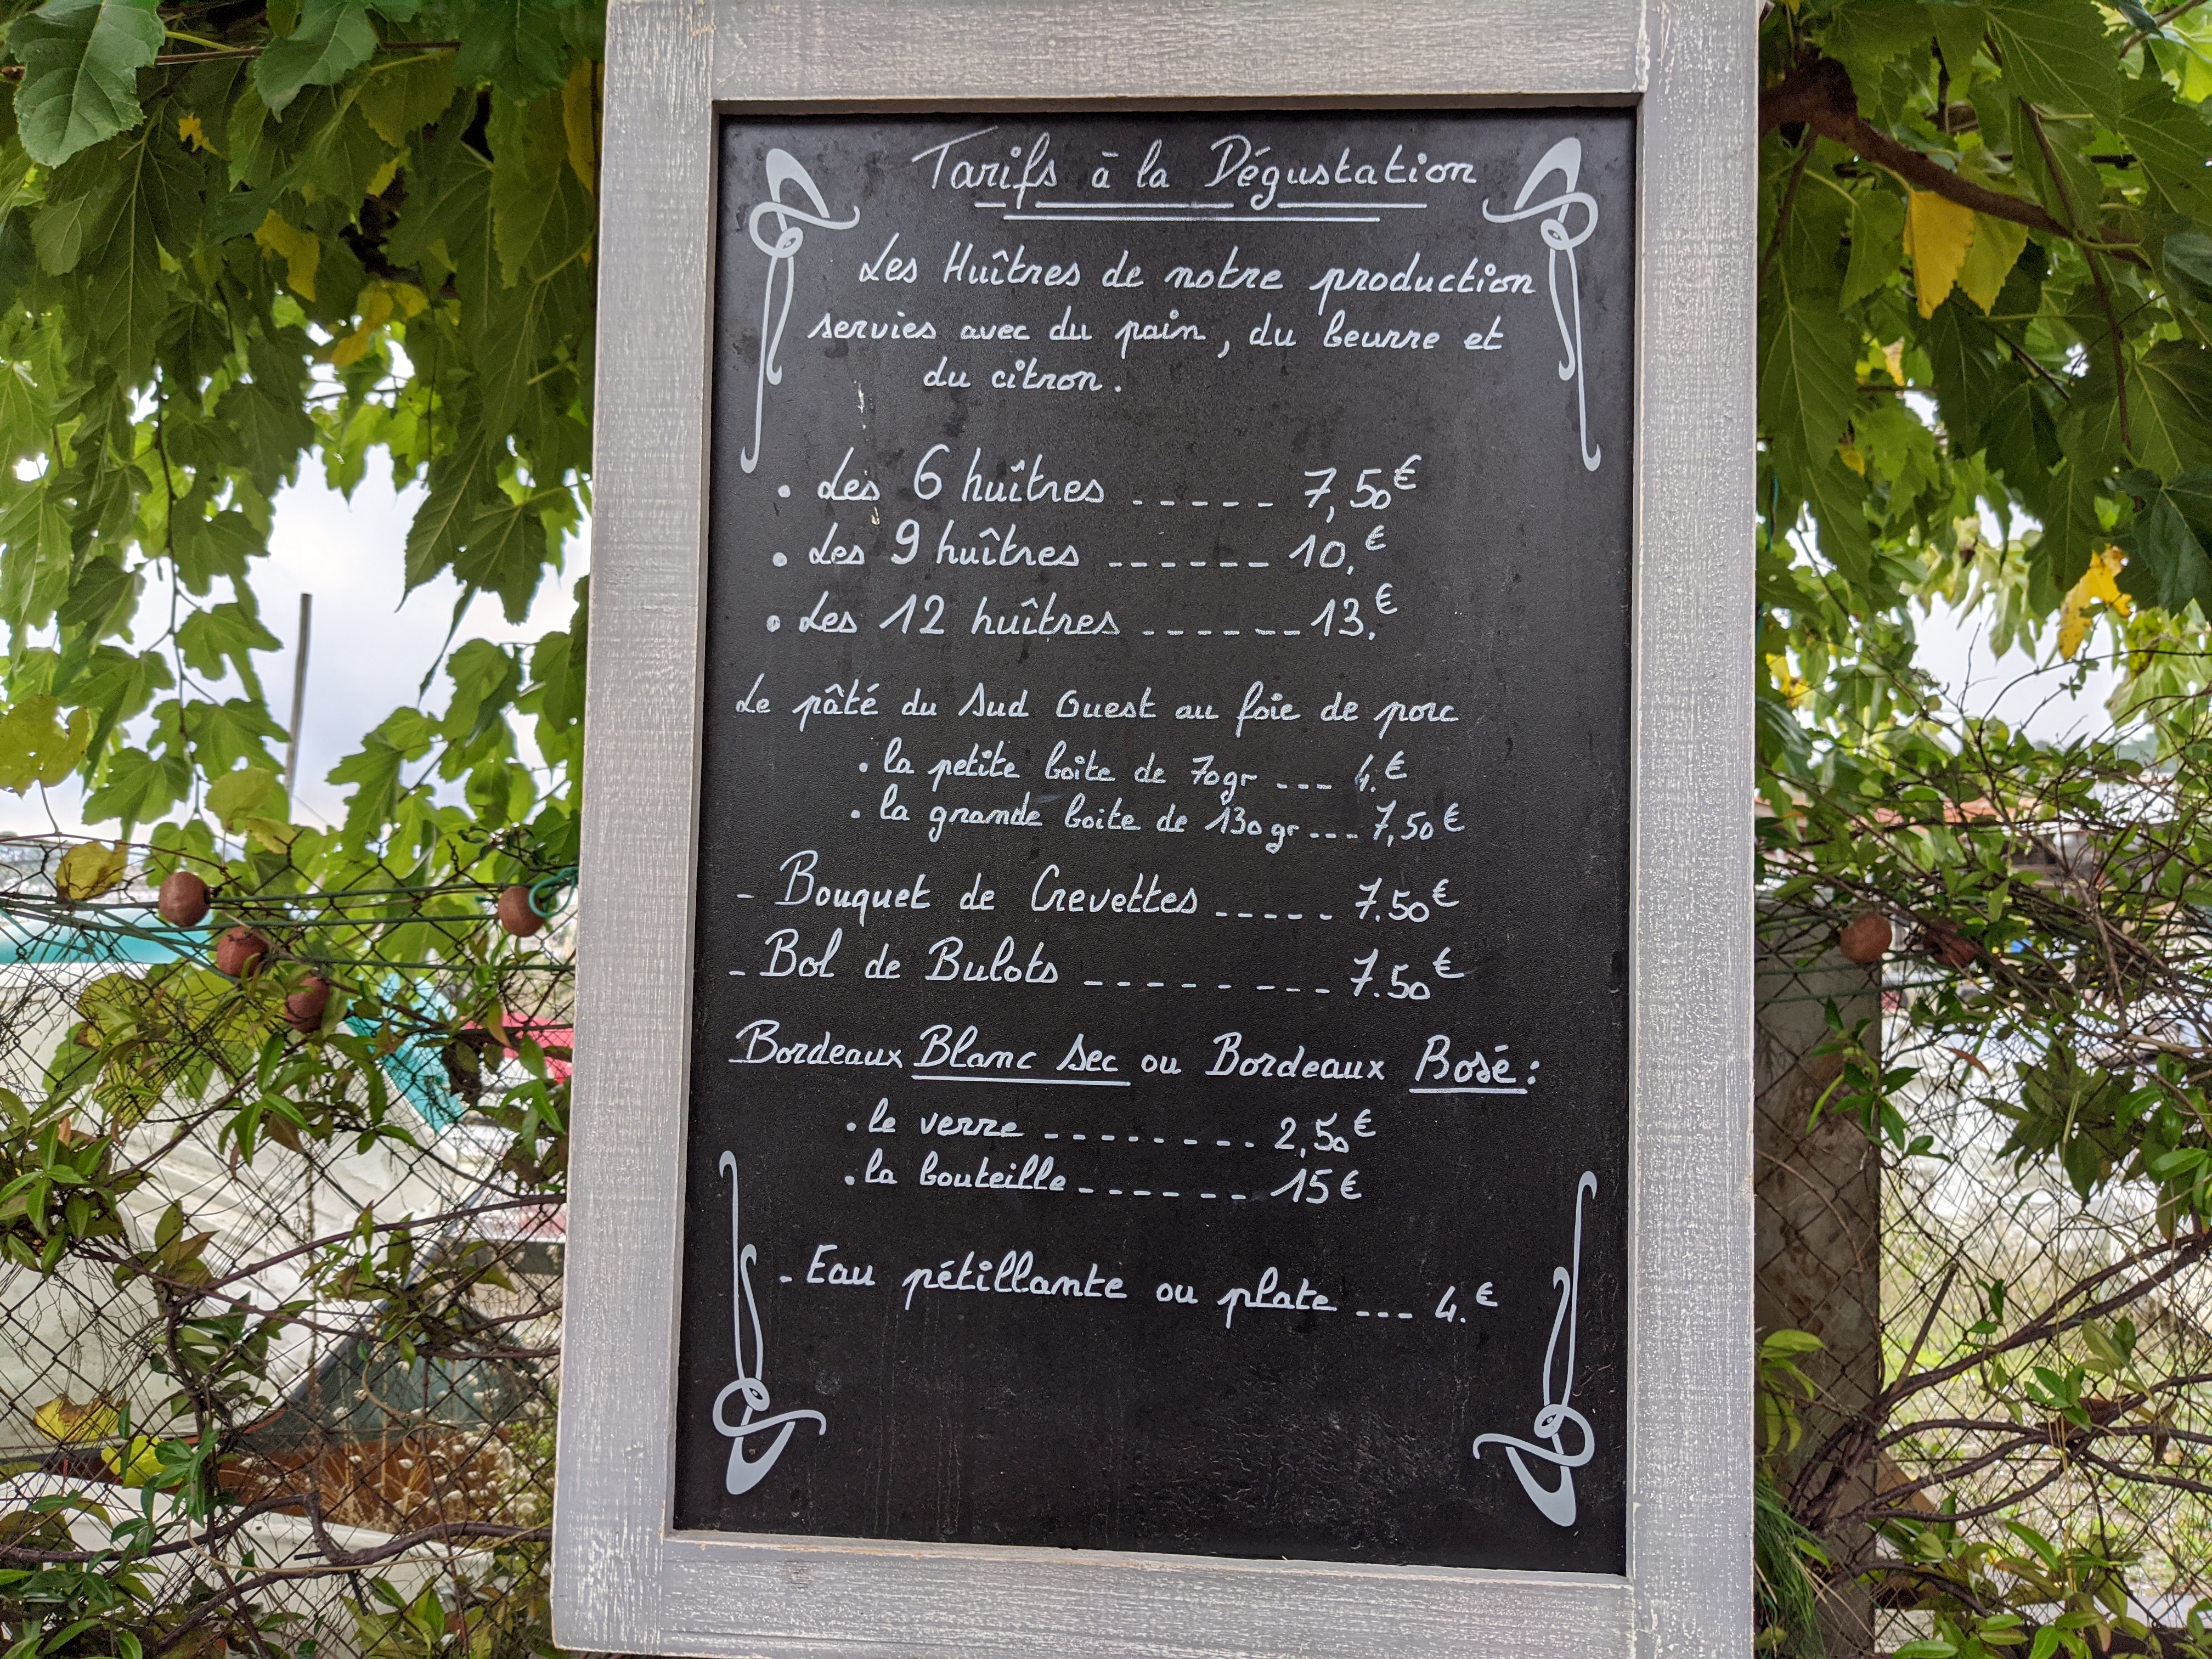 Tarifs à la Dégustation
Les Huîtres de notre production
servies avec du pain, du beurre et
du citron.
. Les 6 huîtres ----- 7,50€
. Les 9 huîtres ------ 10,€
. Les 12 huîtres ------ 13.€
Le pâté du Sud Ouest au foie de porc
. la petite boite de 70gr --- 4.€
. la grande boite de 130gr --- 7,50€
- Bouquet de Crevettes ----- 7.50€
- Bol de Bulots -------- 7.50€
Bordeaux Blanc Sec ou Bordeaux Rosé :
. le verre -------- 2,50€
. la bouteille ------ 15€
- Eau pétillante ou plate --- 4.€